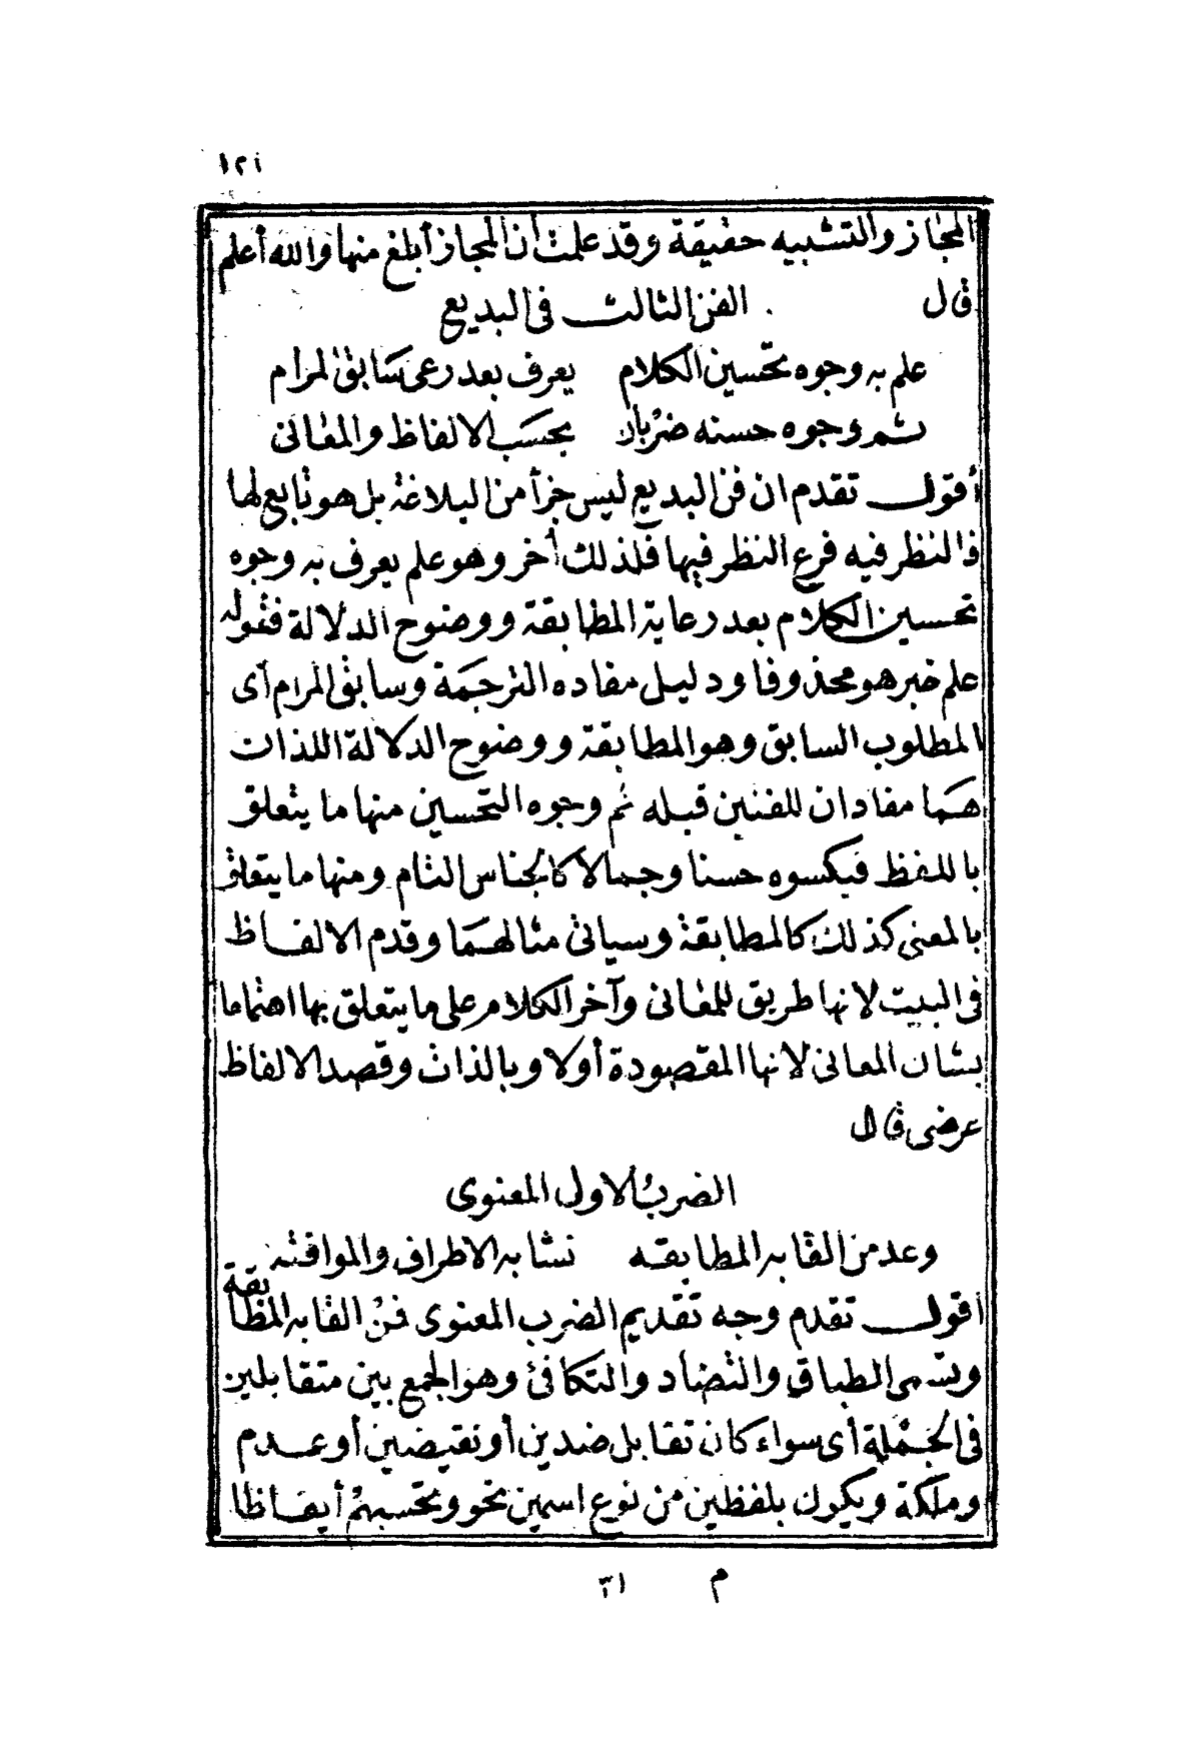 ١٢١
المجاز والتشبيه حقيقة وقد علمت أن المجاز أبلغ منها والله أعلم
قال
الفن الثالث فى البديع
علم به وجوه تحسين الكلام يعرف بعد رعى سابق المرام
ثم وجوه حسنه ضربان بحسب الالفاظ والمعانى
أقول تقدم ان فن البديع ليس جزأ من البلاغة بل هو تابع لها
فالنظر فيه فرع النظر فيها فلذلك أخر وهو علم يعرف به وجوه
تحسين الكلام بعد رعاية المطابقة ووضوح الدلالة فقوله
علم خبر هو محذوفا ودليل مفاده الترجمة وسابق المرام أى
المطلوب السابق وهو المطابقة ووضوح الدلالة اللذات
هما مفادان للفنين قبله ثم وجوه التحسين منها ما يتعلق
باللفظ فيكسوه حسنا وجمالا كالجناس التام ومنها ما يتعلق
بالمعنى كذلك كالمطابقة وسياتى مثالهما وقدم الالفاظ
فى البيت لانها طريق للمعانى وآخر الكلام على ما يتعلق بها اهتماما
بشان المعانى لانها المقصودة أولا وبالذات وقصد الالفاظ
عرضى قال
الضرب الاول المعنوى
وعد من القابه المطابقه تشابه الاطراف والموافقه
أقول تقدم وجه تقديم الضرب المعنوى فمن القابه المطابقة
وتسمى الطباق والتضاد والتكافئ وهو الجمع بين متقابلين
فى الجملة أى سواء كان تقابل ضدين أو نقيضين أو عدم
وملكة ويكون بلفظين من نوع اسمين نحو وتحسبهم أيقاظا
م ١٦